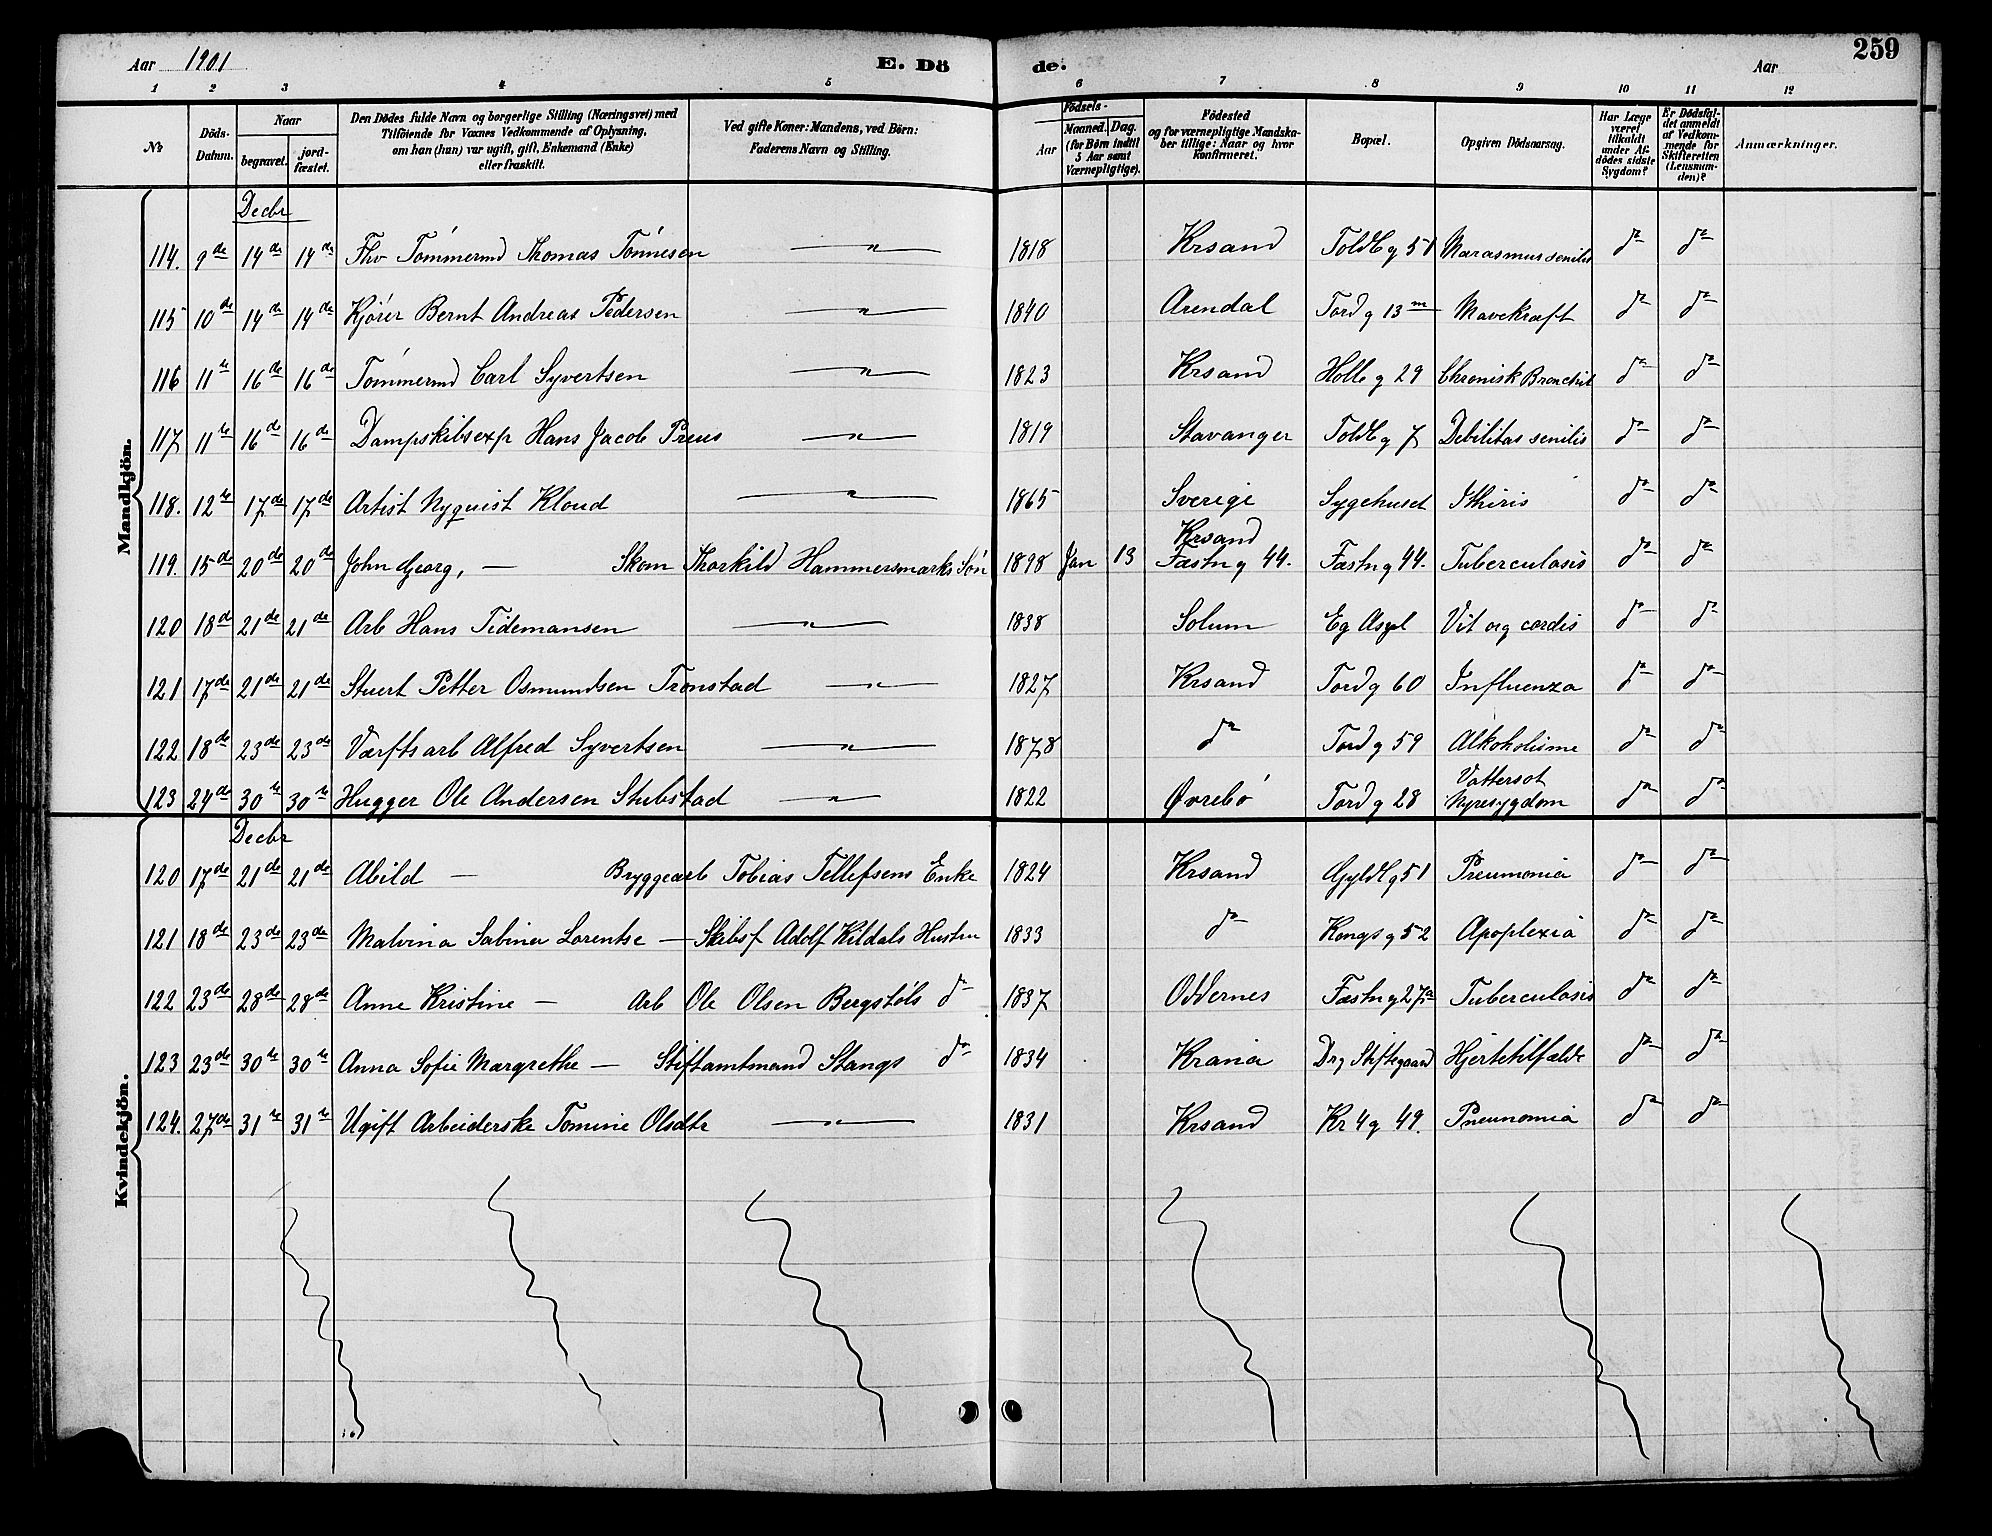 Aar 1901 E. Döde. Aar 259
1 2 3 4 5 6 7 8 9 10 11 12
№ Döds-Datum. Naar begravet. jordfæstet. Den Dödes fulde Navn og borgerlige Stilling (Næringsvei) med Tilföiende for Voxnes Vedkommende af Oplysning, om han (hun) var ugift, gift, Enkemand (Enke) eller fraskilt. Ved gifte Koner: Mandens, ved Börn: Faderens Navn og Stilling. Födsels- Aar Maaned. Dag. (for Börn indtil 5 Aar samt Værnepligtige). Födested og for værnepligtige Mandskaber tillige: Naar og hvor konfirmeret. Bopæl. Opgiven Dödsaarsag. Har Læge været tilkaldt under Afdödes sidste Sygdom? Er Dödsfaldet anmeldt af Vedkommende for Skifteretten (Lensmanden)? Anmærkninger.
Mandkjön.
Decbr
114. 9de 14de 14de Fhv Tömmermd Thomas Tönnesen — " — 1818 Krsand Toldbg 51 Marasmus senilis do do
115 10de 14de 14de Kjörer Bernt Andreas Pedersen — " — 1840 Arendal Tordg 13 Mavekræft do do
116 11te 16de 16de Tömmermd Carl Syvertsen — " — 1823 Krsand Holbg 29 Chronisk Bronchit do do
117 11te 16de 16de Dampskibsexp Hans Jacob Preus — " — 1819 Stavanger Toldbg 7 Debilitas senilis do do
118. 12te 17de 17de Artist Nyquist Kloud — " — 1865 Sverige Sygehuset do do
119. 15de 20de 20de John Georg, — Skom Thorkild Hammersmarks Sön 1898 Jan 13 Krsand Fæstng 44. Fæstng 44. Tuberculosis do do
120 18de 21de 21de Arb Hans Tidemansen — " — 1838 Solum Eg Asyl Vit org cordis do do
121 17de 21de 21de Stuert Petter Osmundsen Tronstad — " — 1827 Krsand Tordg 60 Influenza do do
122 18de 23de 23de Værftsarb Alfred Syvertsen — " — 1878 do Tordg 59 Alkoholisme do do
123 24de 30te 30te Hugger Ole Andersen Stubstad — " — 1822 Øvrebö Tordg 28 Vattersot Nyresygdom do do
Kvindekjön.
Decbr
120 17de 21de 21de Abild — Bryggearb Tobias Tellefsens Enke 1824 Krsand Gyldlg 51 Pneumonia do do
121 18de 23de 23de Malvina Sabina Lorentse — Skibsf Adolf Kildals Hustru 1833 do Kongsg 52 Apoplexia do do
122 23de 28de 28de Anne Kristine — Arb Ole Olsen Bergstöls do 1837 Oddernes Fæstng 27a Tuberculosis do do
123 23de 30te 30te Anna Sofie Margrethe — Stiftamtmand Stangs do 1834 Krania Drg Stiftsgaard Hjertetilfælde do do
124. 27de 31te 31te Ugift Arbeiderske Tomine Olsdtr — " — 1831 Krsand Kr 4g 49. Pneunomia do do